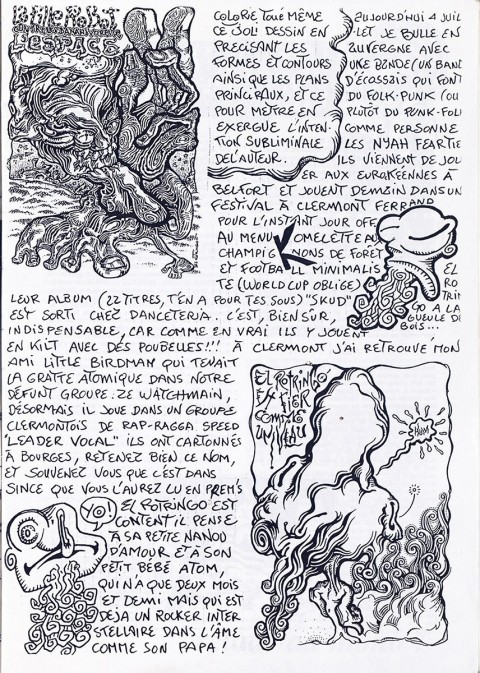 L'ESPACE
COLORIE TOI MÊME
CE JOLI DESSIN EN
PRECISANT LES
FORMES ET CONTOURS
AINSI QUE LES PLANS
PRINCIPAUX, ET CE
POUR METTRE EN
EXERGUE L'INTEN-
TION SUBLIMINALE
DE L'AUTEUR.
AUJOURD'HUI 4 JUIL
-LET JE BULLE EN
AUVERGNE AVEC
UNE BANDE (UN BAND
D'ÉCASSAIS QUI FONT
DU FOLK-PUNK (OU
PLUTÔT DU PUNK-FOL
COMME PERSONNE
LES NYAH FEARTIE
ILS VIENNENT DE JOU
ER AUX EUROKÉENNES À
BELFORT ET JOUENT DEMAIN DANS UN
FESTIVAL À CLERMONT FERRAND
POUR L'INSTANT JOUR OFF
AU MENU OMELETTE AU
CHAMPIGNONS DE FORET
ET FOOTBALL MINIMALIS
TE (WORLD CUP OBLIGE)
LEUR ALBUM (22 TITRES, T'EN A POUR TES SOUS) "SKUD"
EST SORTI CHEZ DANCETERIA. C'EST, BIEN SUR,
INDISPENSABLE, CAR COMME EN VRAI ILS Y JOUENT
EN KILT AVEC DES POUBELLES!!! À CLERMONT J'AI RETROUVÉ MON
AMI LITTLE BIRDMAN QUI TENAIT
LA GRATTE ATOMIQUE DANS NOTRE
DÉFUNT GROUPE: ZE WATCHMAIN,
DÉSORMAIS IL JOUE DANS UN GROUPE
CLERMONTOIS DE RAP-RAGGA SPEED
"LEADER VOCAL" ILS ONT CARTONNÉS
À BOURGES, RETENEZ BIEN CE NOM,
ET SOUVENEZ VOUS QUE C'EST DANS
SINCE QUE VOUS L'AUREZ LU EN PREM'S
EL ROTRINGO EST
CONTENT IL PENSE
À SA PETITE NANOU
D'AMOUR ET À SON
PETIT BÉBÉ ATOM,
QUI N'A QUE DEUX MOIS
ET DEMI MAIS QUI EST
DEJA UN ROCKER INTER
STELLAIRE DANS L'ÂME
COMME SON PAPA!
YO!
EL
RO
TRIN
GO A LA
GUEULE DE
BOIS...
EL ROTRINGO
EX FIER
COMME
UN VEAU
HUM